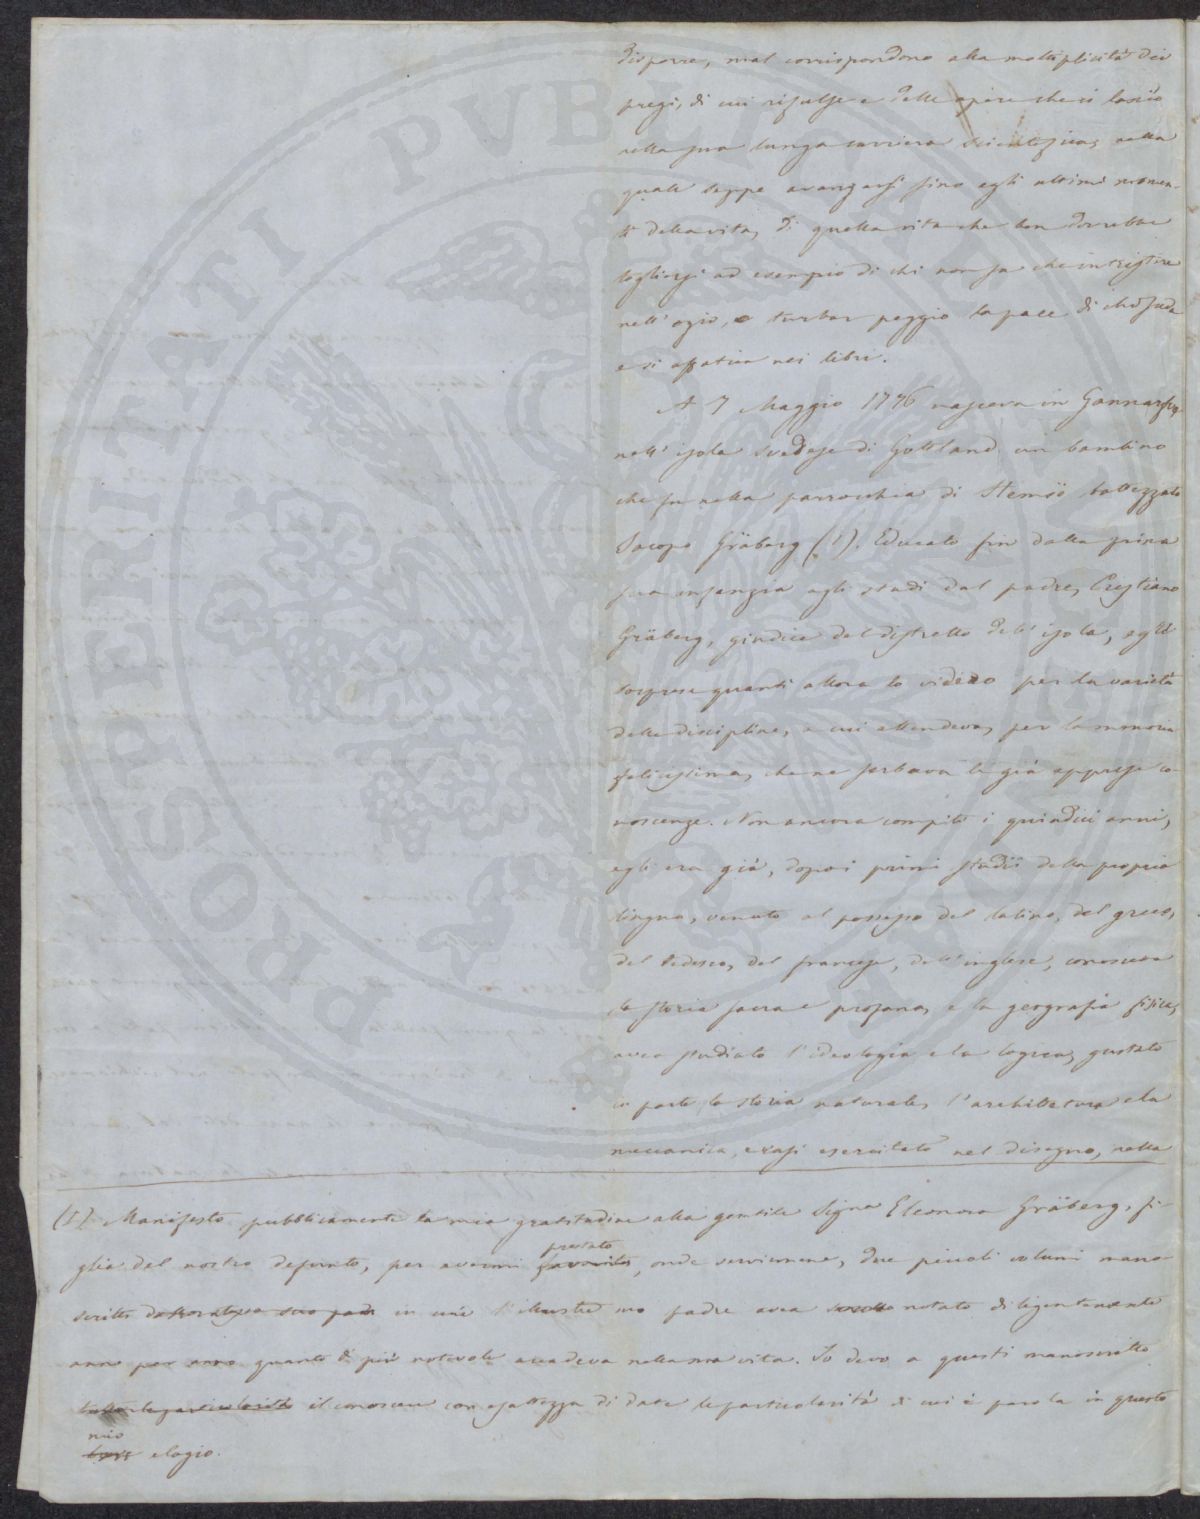 disporre, mal corrispondono alla molteplicità dei
pregi, di cui rifulse e delle opere che ci lasciò
nella sua lunga carriera scientifica, nella
quale seppe avanzarsi fino agli ultimi momen-
ti della vita, di quella vita che ben dovrebbe
togliersi ad esempio di chi non sa che intristire
nell' ozio, o turbar peggio la pace di chi suda
e si affatica nei libri.
A 7 Maggio 1776 nasceva in Gannarfve,
nell' isola svedese di Gottland un bambino
che fu nella parrocchia di Hemsö battezzato
Jacopo Gråberg (1). Educato fin dalla prima
sua infanzia agli studi dal padre, Cristiano
Gråberg, giudice del distretto dell' isola, egli
sorprese quanti allora lo videro per la varietà
delle discipline, a cui attendeva, per la memoria
felicissima, che ne serbava le già apprese co-
noscenze. Non ancora compiti i quindici anni,
egli era già, dopo i primi studii della propria
lingua, venuto al possesso del latino, del greco,
del tedesco, del francese, dell' inglese, conosceva
la storia sacra e profana, e la geografia fisica,
avea studiato l' ideologia e la logica, gustato
in parte la storia naturale, l' architettura e la
meccanica, erasi esercitato nel disegno, nella
(1) Manifesto pubblicamente la mia gratitudine alla gentile Signa Eleonora Gråberg, fi-
glia del nostro defunto, per avermi favorito prestato, onde servirmene, due piccoli volumi mano-
scritti suo padre in cui l' illustre suo padre avea notato diligentemente
anno per anno quanto di più notevole accadeva nella sua vita. Io devo a questi manoscritti
tutte le particolarità il conoscere con esattezza di date le particolarità di cui è parola in questo
breve mio elogio.